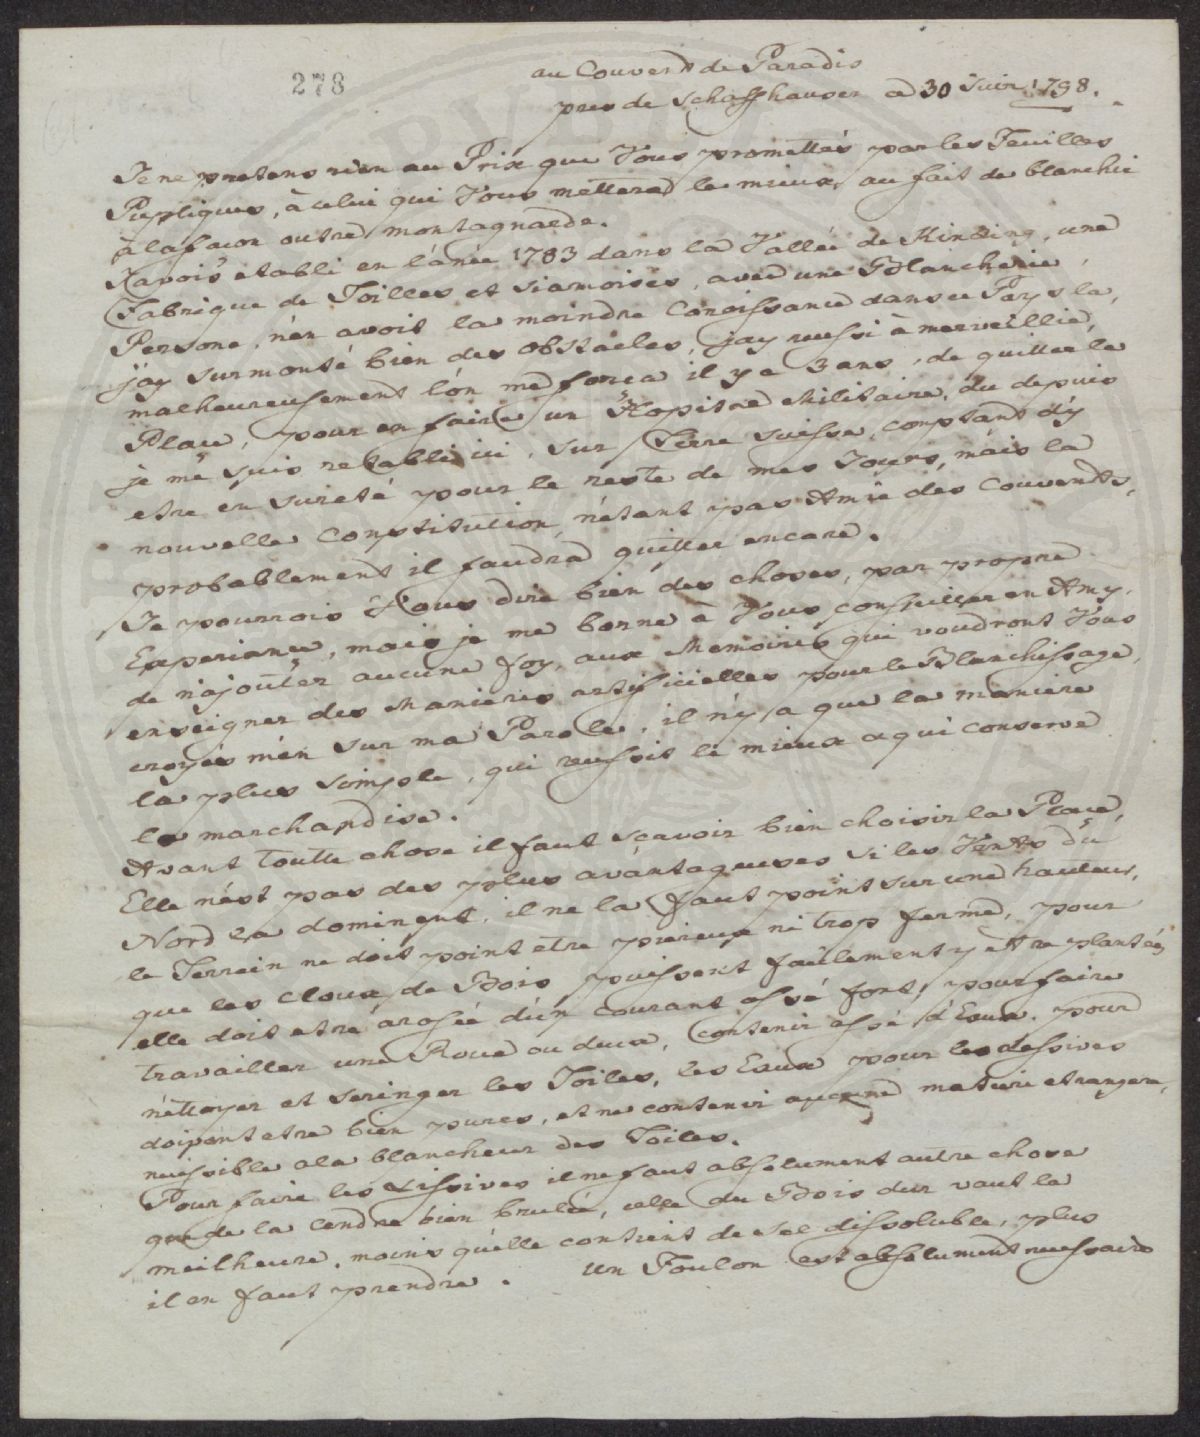 278
au Couvent de Paradis
pres de Schaffhausen a 30 Juin 1798.
Je ne pretens rien au Prix que Vous promettés par les Feuilles
Pupliques, à celui qui Vous mettera le mieux, au fait de blanchir
à la facon outre montagnarde.
J'avois etabli en l'anée 1783 dans la Vallée de Kinzing, une
Fabrique de Toilles et Siamoises, avec une Blancherie,
Persone, n'en avoit la moindre Conoissance dans ce Pays la,
j'ay surmonté bien des obstacles, j'ay reussi à merveillie,
malheureusement l'on me forca il y a 3 ans, de quitter la
Place, pour en faire un Hopital Militaire, du depuis
je me suis retabli ici, sur Terre Suisse, comptant d'y
etre en sureté pour le reste de mes Jours, mais la
nouvelle Constitution, n'etant pas Amie des Couvents,
probablement il faudra quitter encore.
Je pourrois Vous dire bien des choses, par propre
Experience, mais je me borne à Vous conseiller en Amy,
de n'ajoutter aucune foy, aux Memoires qui voudront Vous
enseigner des Manieres artificielles pour le Blanchissage,
croyés m'en sur ma Parole, il n'y a que la maniere
la plus simple, qui reussit le mieux & qui conserve
la marchandise.
Avant toutte chose il faut sçavoir bien choisir la Place,
Elle n'est pas des plus avantageuses si les Vents du
Nord la dominent, il ne la faut point sur une hauteur,
le Terrein ne doit point etre pierreux ni trop ferme, pour
que les Cloux de Bois puissent facilement y être plantés
elle doit etre arosée d'un courant assé fort, pour faire
travailler une Roue ou deux, contenir assé d'Eaux, pour
nettoyer et seringer les Toiles, les Eaux pour les lessives
doivent etre bien pures, et ne contenir aucune matiere etrangere,
nuissible a la blancheur des Toiles.
Pour faire les Lissives il ne faut absolument autre chose
que de la cendre bien brulée, celle du Bois dur vaut la
meilheure, moins qu'elle contient de sel dissoluble, plus
il en faut prendre. Un Foulon est absolument nessaire